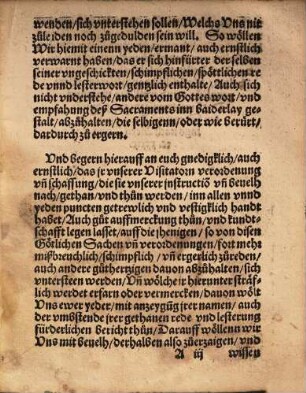 wenden/sich vnterstehen sollen/Welchs Vns nit
zůleiden noch zůgedulden sein will. So wöllen
Wir hiemit einenn yeden/ermant/auch ernstlich
verwarnt haben/das er sich hinfürter der selben
seiner vngeschickten/schimpflichen/spöttlichen re
de vnnd lesterwort/gentzlich enthalte/Auch sich
nicht vnderstehe/andere vom Gottes wort/vnd
empfahung deß Sacraments inn baiderlay ge-
stalt/abzůhalten/die selbigenn/oder wie berůrt/
dardurch zů ergern.
Vnd begern hierauff an euch gnedigklich/auch
ernstlich/das jr vnserer Visitatorn verordenung
vn̄ schaffung/die sie vnserer instructiō vn̄ beuelh
nach/gethan/vnd thůn werden/inn allen vnnd
yeden puncten getrewlich vnd vestigklich handt
habet/Auch gůt auffmerckung thůn/vnd kundt-
schafft legen lasset/auff die jhenigen/so von disen
Götlichen Sachen vn̄ verordenungen/fort mehr
mißbreuchlich/schimpflich/vn̄ ergerlich zůreden/
auch andere gůtherzigen dauon abzůhalten/sich
vntersteen werden/Vn̄ wölche jr hierunter sträf-
lich werdet erfarn oder vermercken/dauon wölt
Vns ewer yeder/mit anzeygūg jrer namen/auch
der vmbstende jrer gethanen rede vnd lesterung
fürderlichen bericht thůn/Darauff wöllenn wir
Vns mit beuelh/derhalben also zůerzaigen/vnd
A iij wissen